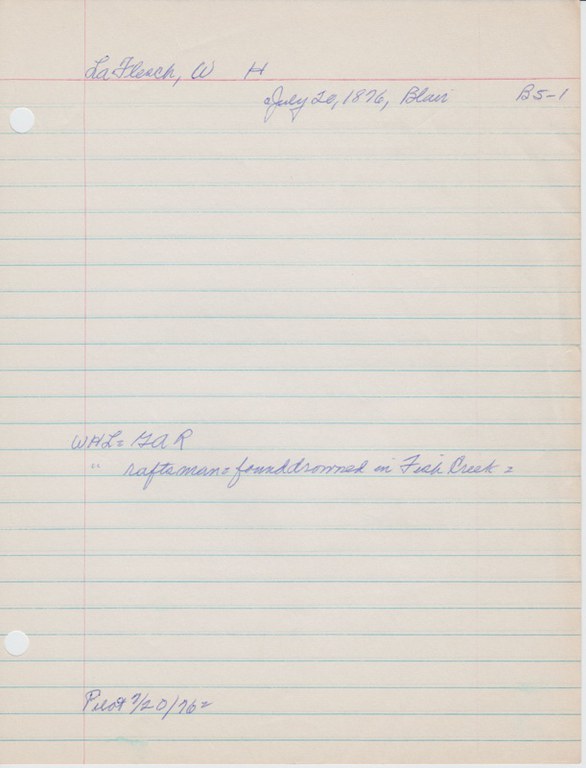 LaFlesch, W H
July 20, 1876, Blair B5-1
WHL= GAR
" raftsman= found drowned in Fish Creek =
Pilot 7/20/76=